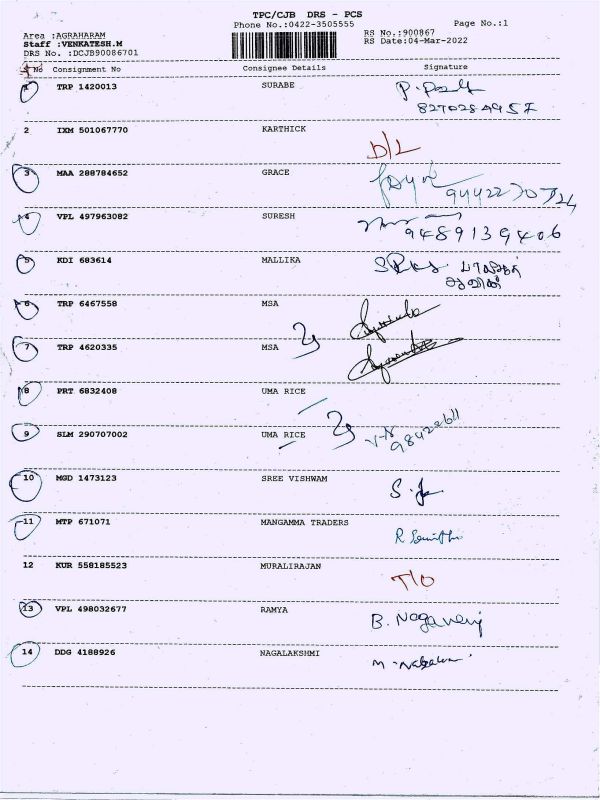 TPC/CJB DRS - PCS
Phone No.:0422-3505555 Page No.:1
Area :AGRAHARAM RS No.:900867
Staff :VENKATESH.M RS Date:04-Mar-2022
DRS No. :DCJB90086701
S No Consignment No Consignee Details Signature
1 TRP 1420013 SURABE
2 IXM 501067770 KARTHICK
D/L
3 MAA 288784652 GRACE
4 VPL 497963082 SURESH
9489139406
5 KDI 683614 MALLIKA
6 TRP 6467558 MSA
7 TRP 4620335 MSA
8 PRT 6832408 UMA RICE
9 SLM 290707002 UMA RICE
10 MGD 1473123 SREE VISHWAM
11 MTP 671071 MANGAMMA TRADERS
12 KUR 558185523 MURALIRAJAN
T/O
13 VPL 498032677 RAMYA
B. Nagaveni
14 DDG 4188926 NAGALAKSHMI